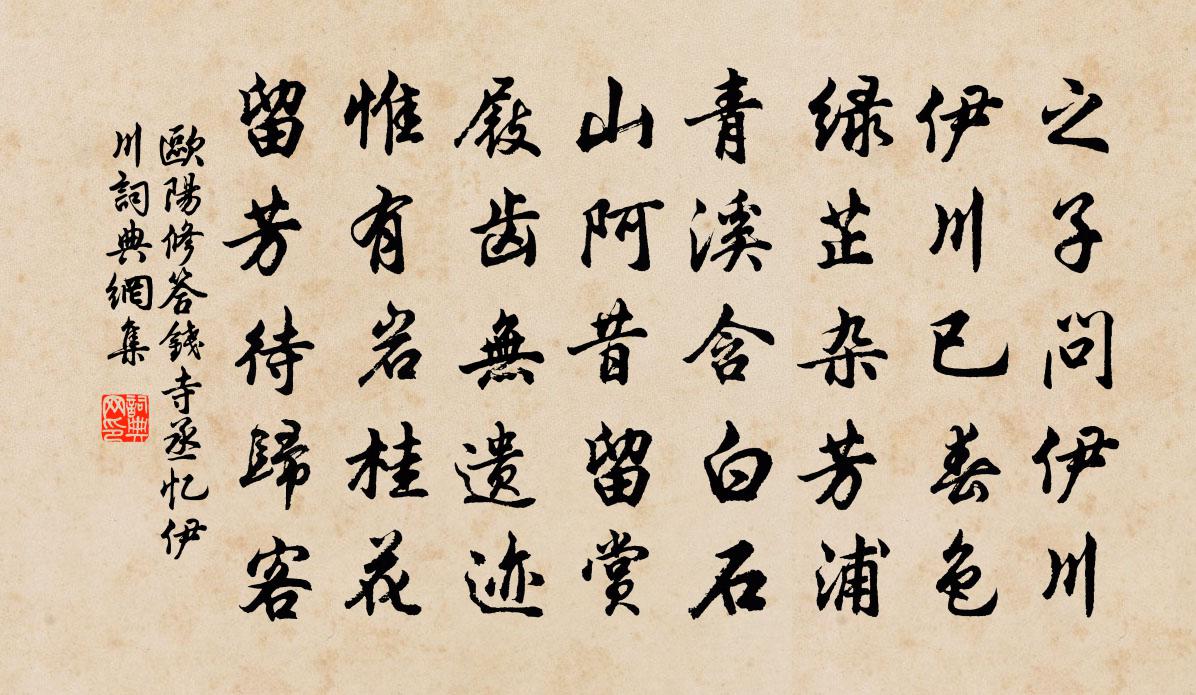 之子问伊川
伊川已春色
绿芷杂芳浦
青溪含白石
山阿昔留赏
屐齿無遗迹
惟有岩桂花
留芳待歸客
歐陽修答錢寺丞忆伊
川詞典網集
詞典网印